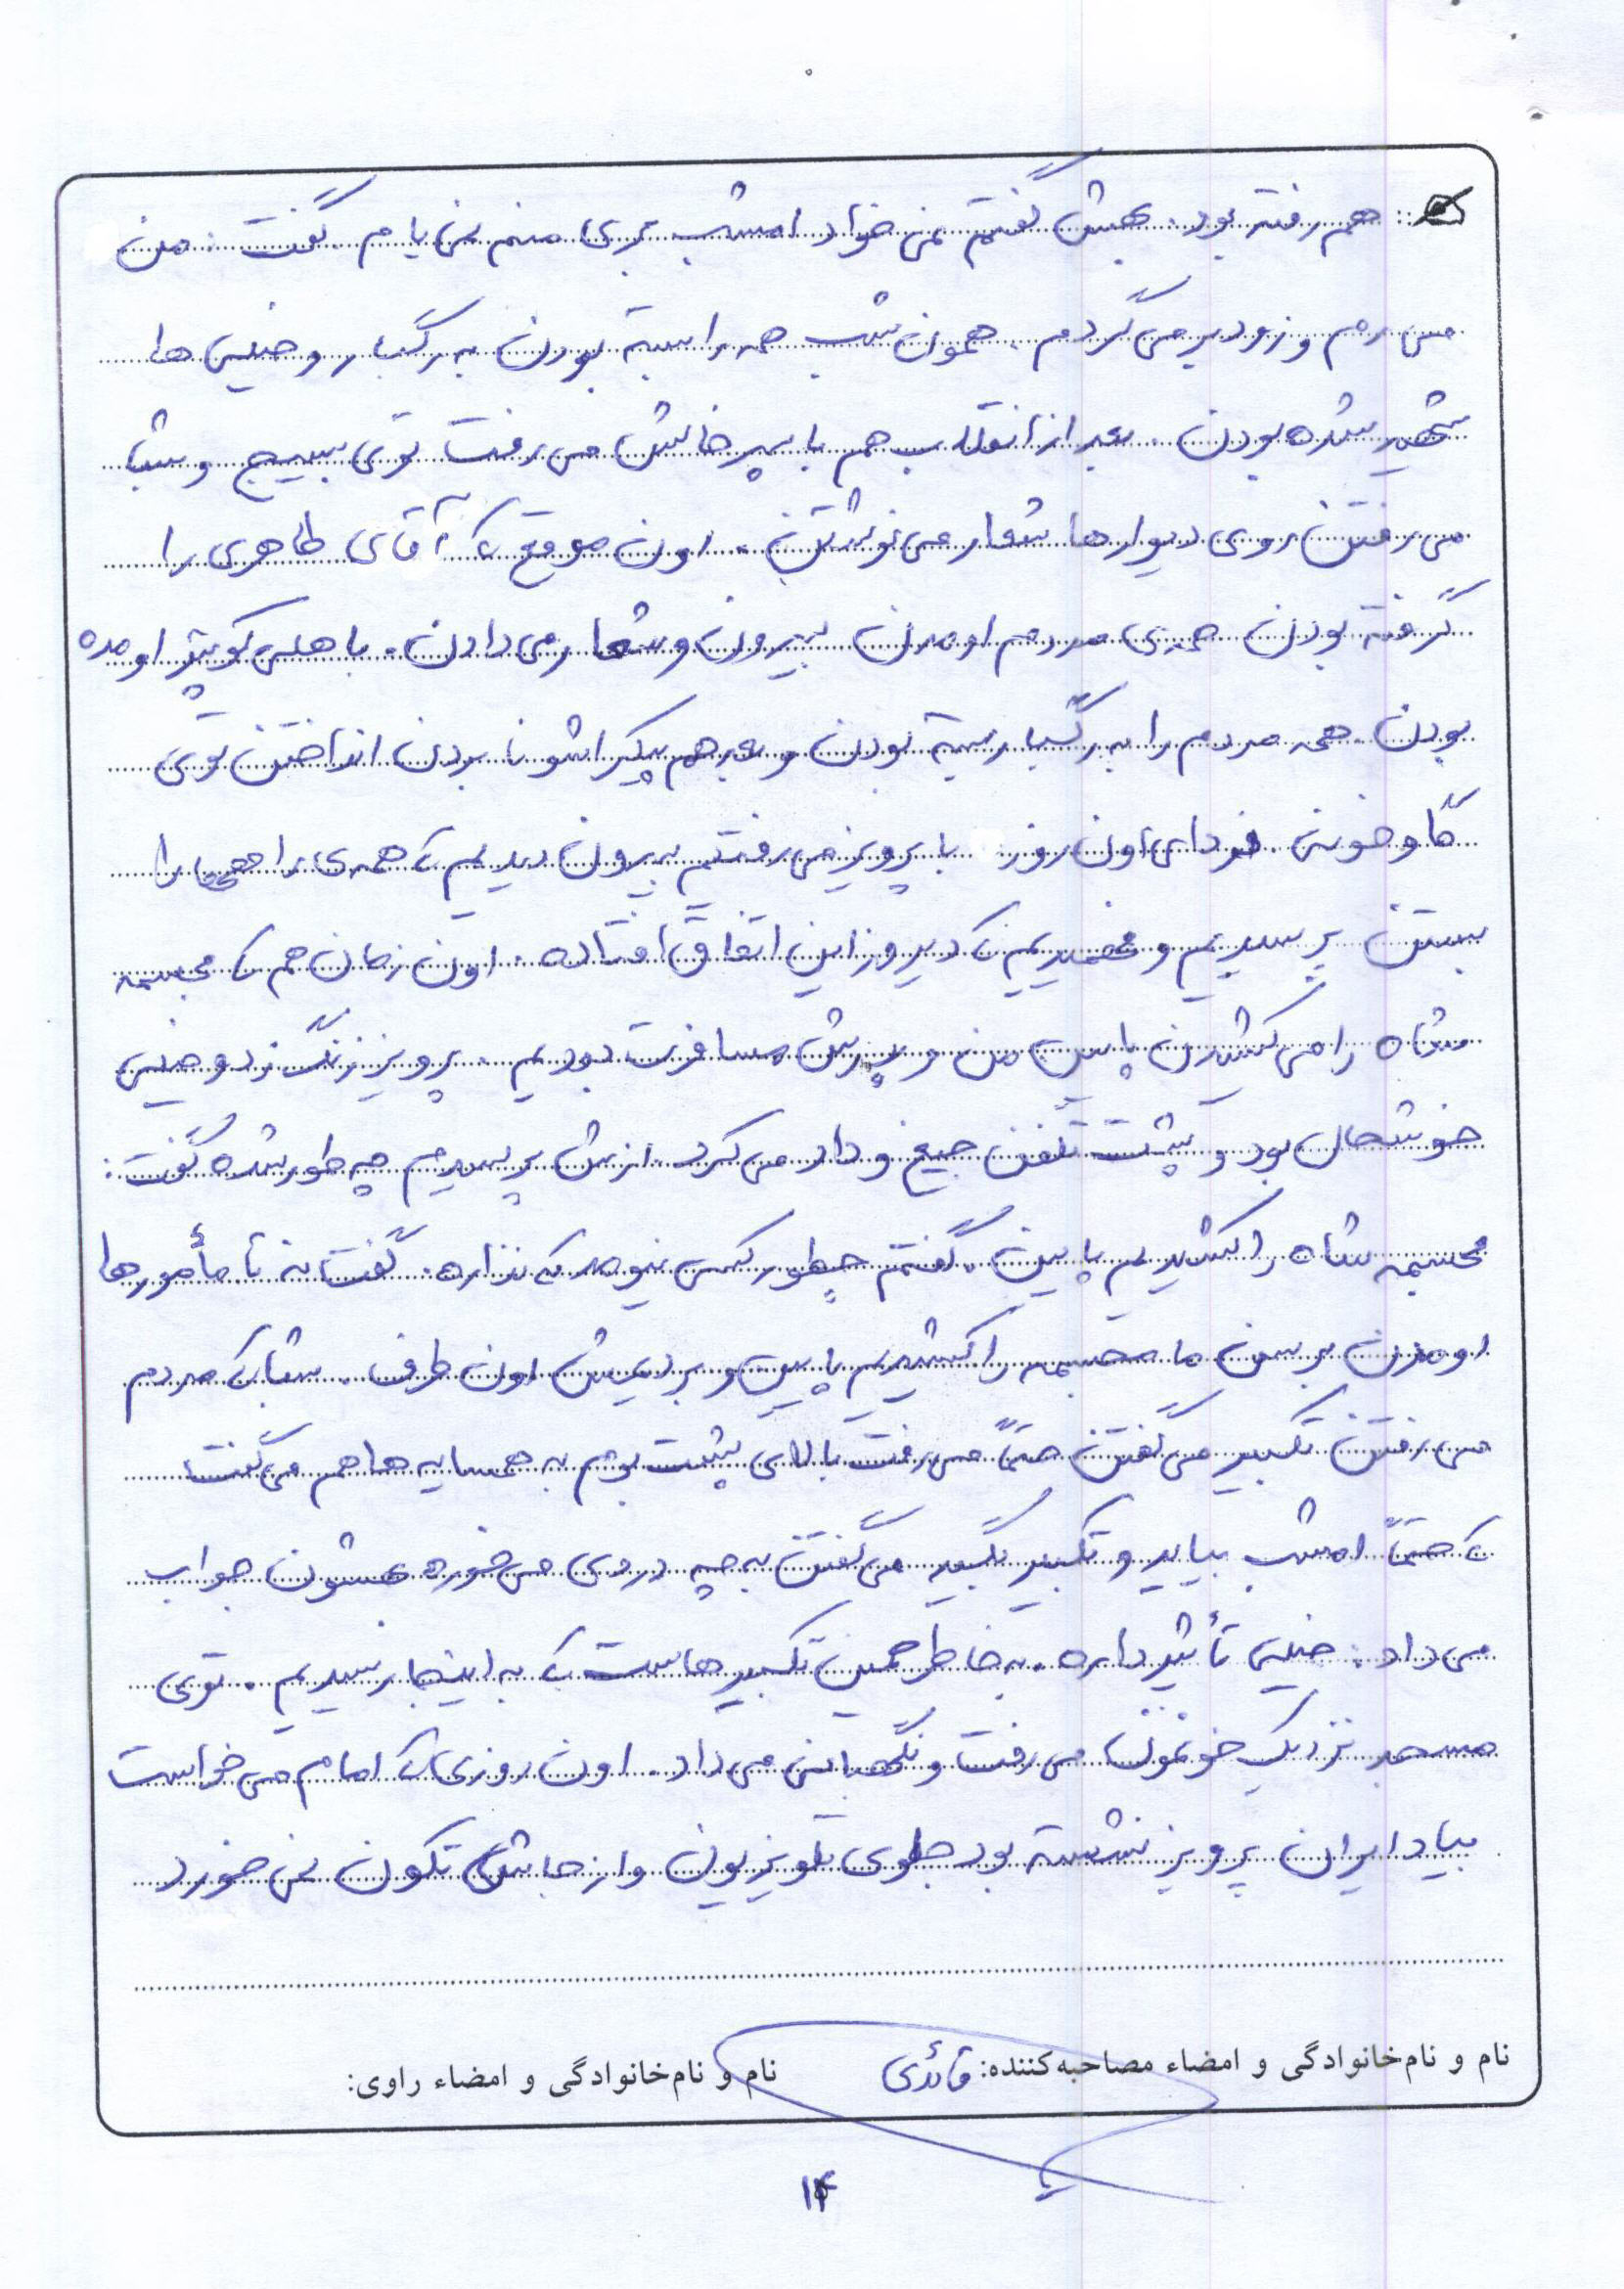 هم رفته بود. بهش گفتم نمی خواد امشب بری منم نمی یام. گفت: من
می رم و زود بر می گردم. همون شب همه را بسته بودن به رگبار و خیلی ها
شهید شده بودن. بعد از انقلاب هم با پسرخالش می رفت توی بسیج و شبا
می رفتن روی دیوارها شعار می نوشتن. اون موقع که آقای طاهری را
گرفته بودن همه ی مردم اومدن بیرون و شعار می دادن. با هلی کوپتر اومده
بودن. همه مردم را به رگبار بسته بودن و بعد هم پیکراشونا بردن انداختن توی
گاوخونی. فردای اون روز با پرویز می رفتیم بیرون دیدیم که همه ی راهها را
بستن پرسیدیم و فهمیدیم که دیروز این اتفاق افتاده. اون زمان هم که مجسمه
شاه را می کشیدن پایین من و پدرش مسافرت بودیم. پرویز زنگ زد و خیلی
خوشحال بود و پشت تلفن جیغ و داد می کرد. ازش پرسیدم چه طور شده گفت:
مجسمه شاه را کشیدیم پایین. گفتم چطور کسی نیومد که نذاره. گفت نه تا مأمورها
اومدن برسن ما مجسمه را کشیدیم پایین و بردیمش اون طرف. شبا که مردم
می رفتن تکبیر می گفتن حتماً می رفت بالای پشت بوم به همسایه ها هم می گفت
که حتماً امشب بیاید و تکبیر بگید می گفتن به چه دردی می خوره بهشون جواب
می داد: خیلی تأثیر داره. به خاطر همین تکبیرهاست که به اینجا رسیدیم. توی
مسجد نزدیک خونمون می رفت و نگهبانی می داد. اون روزی که امام می خواست
بیاد ایران پرویز نشسته بود جلوی تلویزیون و از جاش تکون نمی خورد
نام و نام خانوادگی و امضاء مصاحبه کننده: قائدی
نام و نام خانوادگی و امضاء راوی:
۱۴